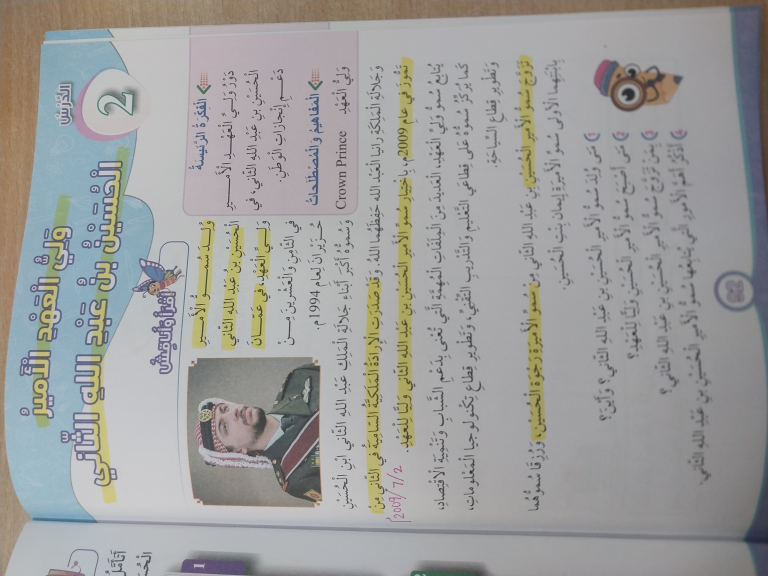 الدَّرْسُ
2
وَلِيُّ الْعَهْدِ الْأَمِيرُ
الْحُسَيْنُ بْنُ عَبْدِ اللهِ الثَّانِي
أَقْرَأُ وَأُناقِشُ
الْفِكْرَةُ الرَّئِيسَةُ
دَوْرُ وَلِيِّ الْعَهْدِ الْأَمِيرِ
الْحُسَيْنِ بْنِ عَبْدِ اللهِ الثَّانِي، فِي
دَعْمِ إِنْجَازَاتِ الْوَطَنِ.
الْمَفَاهِيمُ وَالْمُصْطَلَحَاتُ
وَلِيُّ الْعَهْدِ Crown Prince
وُلِدَ سُمُوُّ الْأَمِيرِ
الْحُسَيْنِ بْنِ عَبْدِ اللهِ الثَّانِي
وَلِيِّ الْعَهْدِ، فِي عَمَّانَ
فِي الثَّامِنِ وَالْعِشْرِينَ مِنْ
حُزَيْرَانَ لِعَامِ 1994م.
وَسُمُوُّهُ أَكْبَرُ أَبْنَاءِ جَلَالَةِ الْمَلِكِ عَبْدِ اللهِ الثَّانِي ابْنِ الْحُسَيْنِ
وَجَلَالَةِ الْمَلِكَةِ رانيا الْعَبْدِ اللهِ حَفِظَهُمَا اللهُ، وَقَدْ صَدَرَتِ الْإِرَادَةُ الْمَلَكِيَّةُ السَّامِيَةُ فِي الثَّانِي مِنْ
تَمُّوزَ فِي عَامِ 2009م، بِاخْتِيَارِ سُمُوِّ الْأَمِيرِ الْحُسَيْنِ بْنِ عَبْدِ اللهِ الثَّانِي وَلِيًّا لِلْعَهْدِ.
2009/7/2
يُتَابِعُ سُمُوُّ وَلِيِّ الْعَهْدِ، الْعَدِيدَ مِنَ الْمِلَفَّاتِ الْمُهِمَّةِ الَّتِي تُعْنَى بِدَعْمِ الشَّبَابِ وَتَنْمِيَةِ الِاقْتِصَادِ،
كَمَا يُرَكِّزُ سُمُوُّهُ عَلَى قِطَاعَيِ التَّعْلِيمِ وَالتَّدْرِيبِ التِّقْنِيِّ، وَتَطْوِيرِ قِطَاعِ تِكْنُولُوجِيَا الْمَعْلُومَاتِ،
وَتَطْوِيرِ قِطَاعِ السِّيَاحَةِ.
تَزَوَّجَ سُمُوُّ الْأَمِيرِ الْحُسَيْنِ بْنِ عَبْدِ اللهِ الثَّانِي مِنْ سُمُوِّ الْأَمِيرَةِ رَجْوَةَ الْحُسَيْنِ، وَرُزِقَا سُمُوُّهُمَا
بِابْنَتِهِمَا الْأُولَى سُمُوِّ الْأَمِيرَةِ إِيمَان بِنْتِ الْحُسَيْنِ.
مَتَى وُلِدَ سُمُوُّ الْأَمِيرِ الْحُسَيْنِ بْنِ عَبْدِ اللهِ الثَّانِي؟ وَأَيْنَ؟
مَتَى أَصْبَحَ سُمُوُّ الْأَمِيرِ الْحُسَيْنِ وَلِيًّا لِلْعَهْدِ؟
بِمَنْ تَزَوَّجَ سُمُوُّ الْأَمِيرِ الْحُسَيْنِ بْنِ عَبْدِ اللهِ الثَّانِي؟
أَذْكُرُ أَهَمَّ الْأُمُورِ الَّتِي يُتَابِعُهَا سُمُوُّ الْأَمِيرِ الْحُسَيْنِ بْنِ عَبْدِ اللهِ الثَّانِي.
52
أَتَأَمَّلُ
1